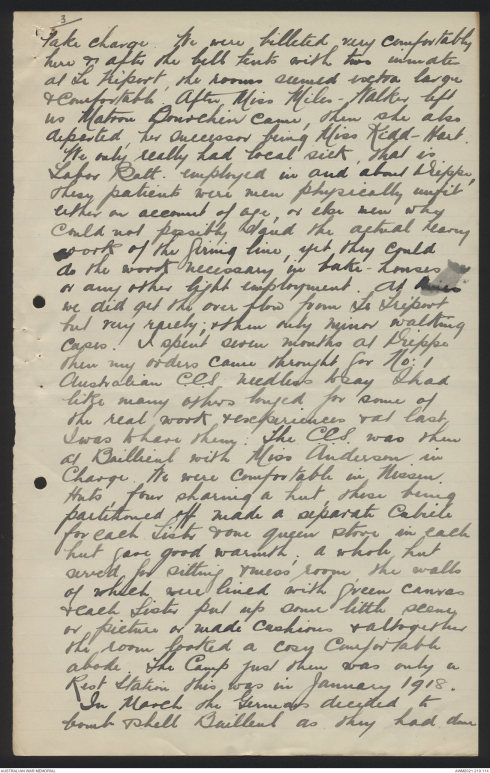 3
take charge. We were billeted very comfortably
here & after the bell tents with two inmates
at Le Treport, the rooms seemed extra large
& comfortable. After Miss Miles-Walker left
us Matron Bourchier came, then she also
departed, her successor being Miss Kidd-Hart.
We only really had local sick, that is
Labor Batt. employed in and about Dieppe,
these patients were men physically unfit
either on account of age, or else men who
could not possibly stand the actual heavy
work of the firing line, yet they could
do the work necessary in bake-houses
or any other light employment. At times
we did get the over flow from Le Treport
but very rarely, & then only minor walking
cases. I spent seven months at Dieppe
then my orders came through for No. 1
Australian CCS. needless to say I had
like many others longed for some of
the real work & experiences & at last
I was to have them. The CCS. was then
at Bailleul with Miss Anderson in
Charge. We were comfortable in Nissen
Huts, four sharing a hut these being
partitioned off made a separate Cubicle
for each Sister & one queen stove in each
hut gave good warmth, a whole hut
served for sitting & mess room, the walls
of which were lined with green canvas
& each Sister put up some little scene
or picture or made cushions & altogether
the room looked a cosy comfortable
abode. The Camp just then was only a
Rest Station this was in January 1918.
In March the Germans decided to
bomb & shell Bailleul as they had done
AUSTRALIAN WAR MEMORIAL